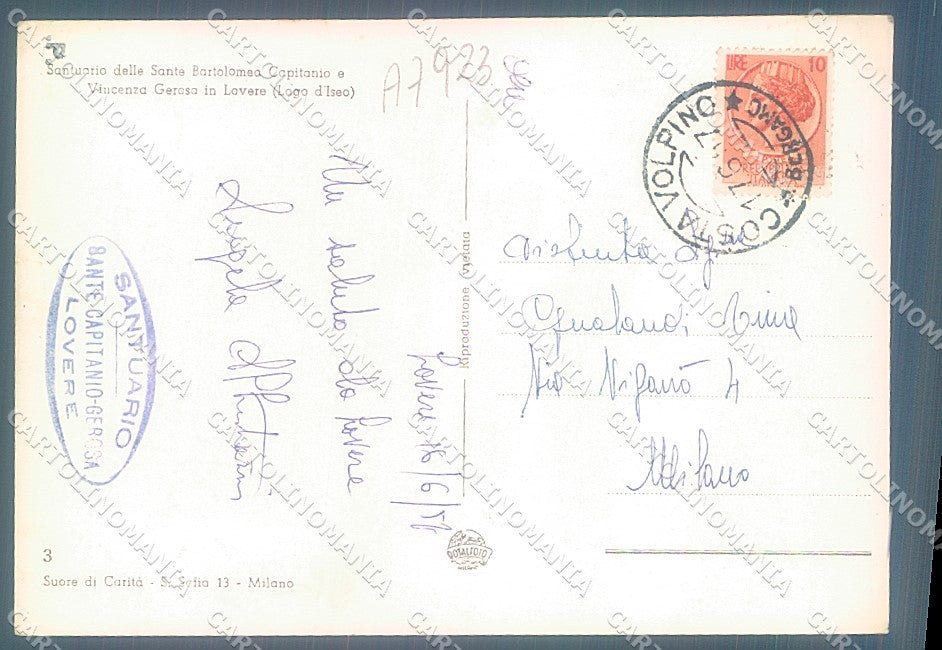 Santuario delle Sante Bartolomea Capitanio e
Vincenza Gerosa in Lovere (Lago d'Iseo)
A7
LIRE 10
COSTA VOLPINO ★ BERGAMO
Un saluto da Lovere
Angela
Lovere 16/6/57
SANTUARIO
SANTE CAPITANIO-GEROSA
LOVERE
Riproduzione Vietata
Distinta
Via Viganò 4
Milano
ROTALFOTO
MILANO
3
Suore di Carità - S. Sofia 13 - Milano
CARTOLINOMANIA